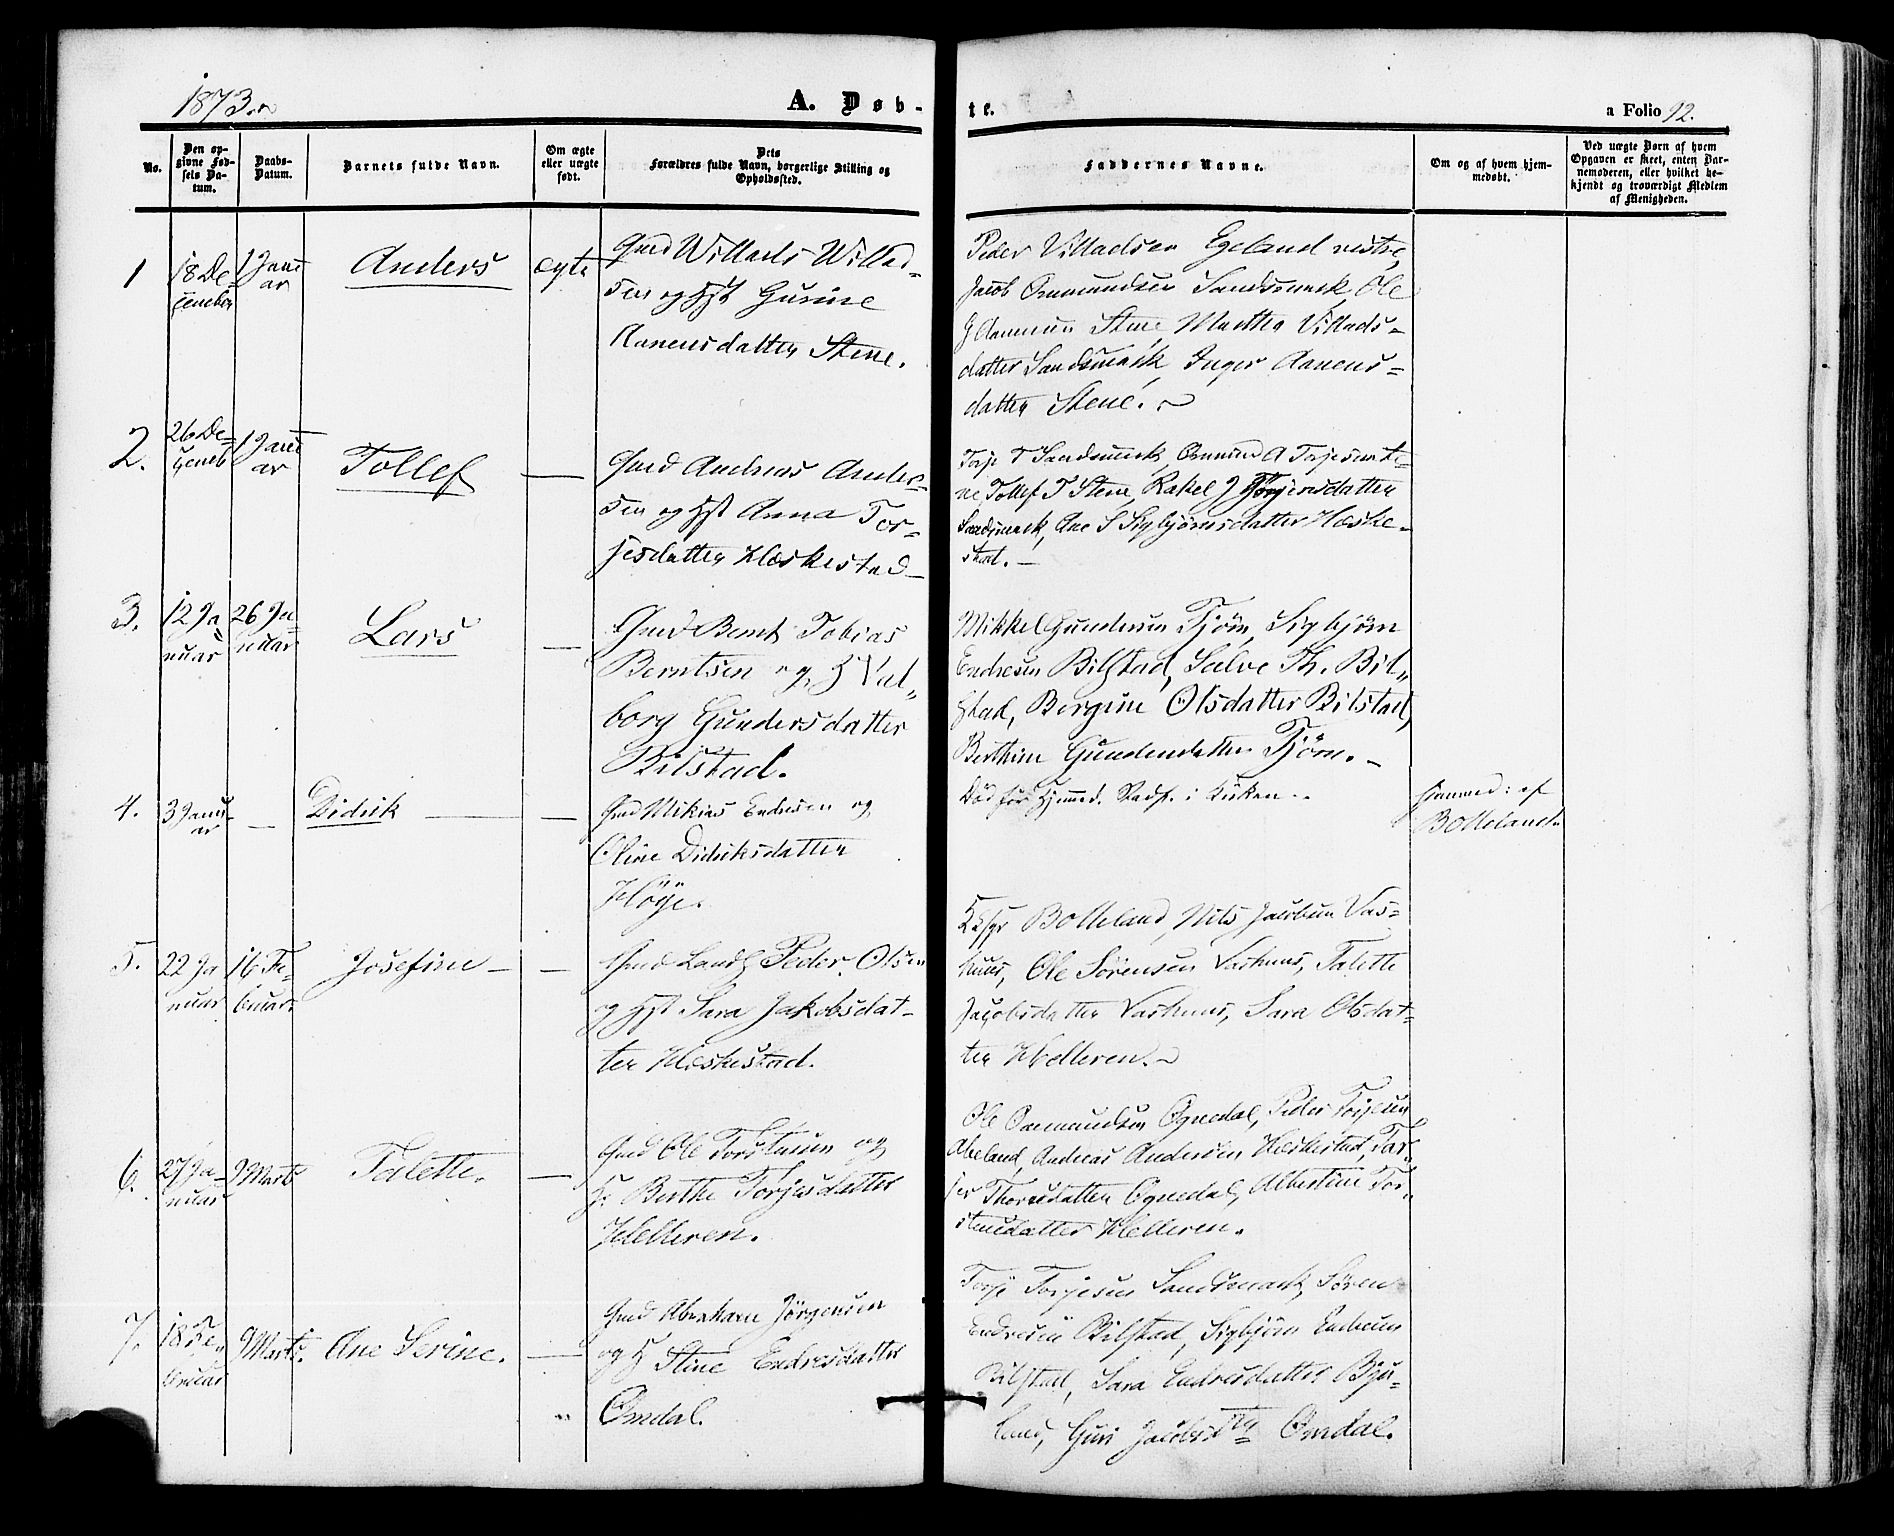 1873.
A. Døb-
te.
a Folio 92.
No.
Den op-
givne Fød-
sels Da-
tum.
Daabs-
Datum.
Barnets fulde Navn.
Om ægte
eller uægte
født.
Dets
Forældres fulde Navn, borgerlige Stilling og
Opholdssted.
Faddernes Navne.
Om og af hvem hjem-
medøbt.
Ved uægte Børn af hvem
Opgaven er skeet, enten Bar-
nemoderen, eller hvilket be-
kjendt og troværdigt Medlem
af Menigheden.
1
18 De-
cember
1 Janu
ar
Anders
egte
Gmd Willads Willad-
sen og Hst Gurine
Aanensdatter Stene.
Peder Villadsen Egeland vestre,
Jacob Osmundsen Sandsmark, Ole
G Aanensen Stene, Marthe Villads-
datter Sandsmark, Inger Aanens-
datter Stene.
2.
26 De-
cemb
1 Janu
ar
Tollef
—
Gmd Andreas Ander-
sen og Hst Anna Tor-
jesdatter Heskestad
Torje T Sandsmark, Osmund A Torjesen Ste-
ne Tollef T Stene, Rakel J Torjersdatter
Sandsmark, Ane S Sigbjørnsdatter Heske-
stad. —
3.
12 Ja
nuar
26 Ja-
nuar
Lars
—
Gmd Bernt Tobias
Berntsen og H Val-
borg Gundersdatter
Bilstad.
Mikkel Gundersen Tjøm, Sigbjørn
Endresen Bilstad, Salve Th. Bil-
stad, Bergine Olsdatter Bilstad,
Berthine Gundersdatter Tjøm. —
4.
3 Janu-
ar
—
Didrik
—
Gmd Mikias Endresen og
Oline Didriksdatter
Høye.
Død før Hjemmed. Stadf. i Kirken.
hjemmed: af
Bolleland.
5.
22 Ja
nuar
16 Fe-
bruar.
Josefine
—
Gmd Landh Peder Olsen
og Hst Sara Jakobsdat-
ter Heskestad.
Bolleland, Nils Jacobsen Vas-
huus, Ole Sørensen Vashuus, Talette
Jacobsdatter Vashuus, Sara Olsdat-
ter Helleren.
6.
27 Ja-
nuar
9 Marts
Talette.
—
Gmd Ole Torstensen og
H. Berthe Torjesdatter
Helleren.
Ole Osmundsen Øgnedal, Peder Torjesen
Abeland, Andreas Andersen Heskestad, Tor-
jer Thorsdatter Øgnedal, Albertine Tor-
stensdatter Helleren.
7.
18 Fe-
bruar
9 Marts.
Ane Serine.
—
Gmd Abraham Jørgensen
og H Stine Endresdatter
Omdal.
Torje Torjesen Sandsmark, Søren
Endresen Bilstad, Sigbjørn Endresen
Bilstad, Sara Endresdatter Bju-
land, Guri Jacobsdtr Omdal.